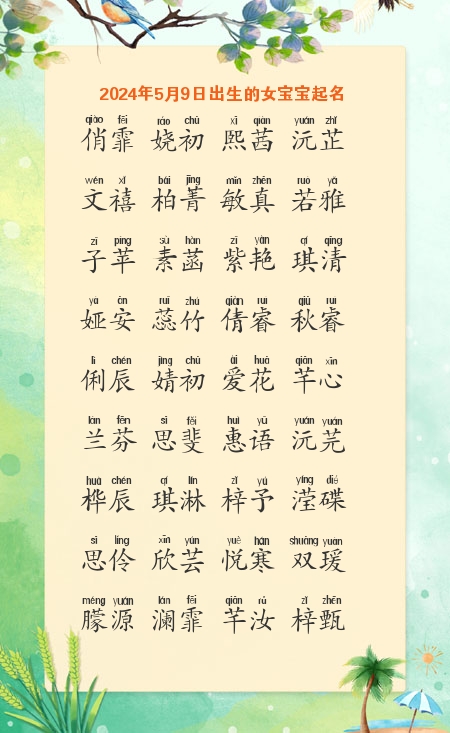 2024年5月9日出生的女宝宝起名
qiào fēi ráo chū xī qiàn yuán zhǐ
俏霏 娆初 熙茜 沅芷
wén xǐ bǎi jīng mǐn zhēn ruò yǎ
文禧 柏菁 敏真 若雅
zǐ píng sù hàn zǐ yàn qí qīng
子苹 素菡 紫艳 琪清
yà ān ruǐ zhú qiàn ruì qiū ruì
娅安 蕊竹 倩睿 秋睿
lì chén jìng chū ài huā qiān xīn
俐辰 婧初 爱花 芊心
lán fēn sī fěi huì yǔ yuán yuán
兰芬 思斐 惠语 沅芫
huà chén qí lín zǐ yú yíng dié
桦辰 琪淋 梓予 滢碟
sī líng xīn yún yuè hán shuāng yuàn
思伶 欣芸 悦寒 双瑗
méng yuán lán fēi qiān rǔ zǐ zhēn
朦源 澜霏 芊汝 梓甄